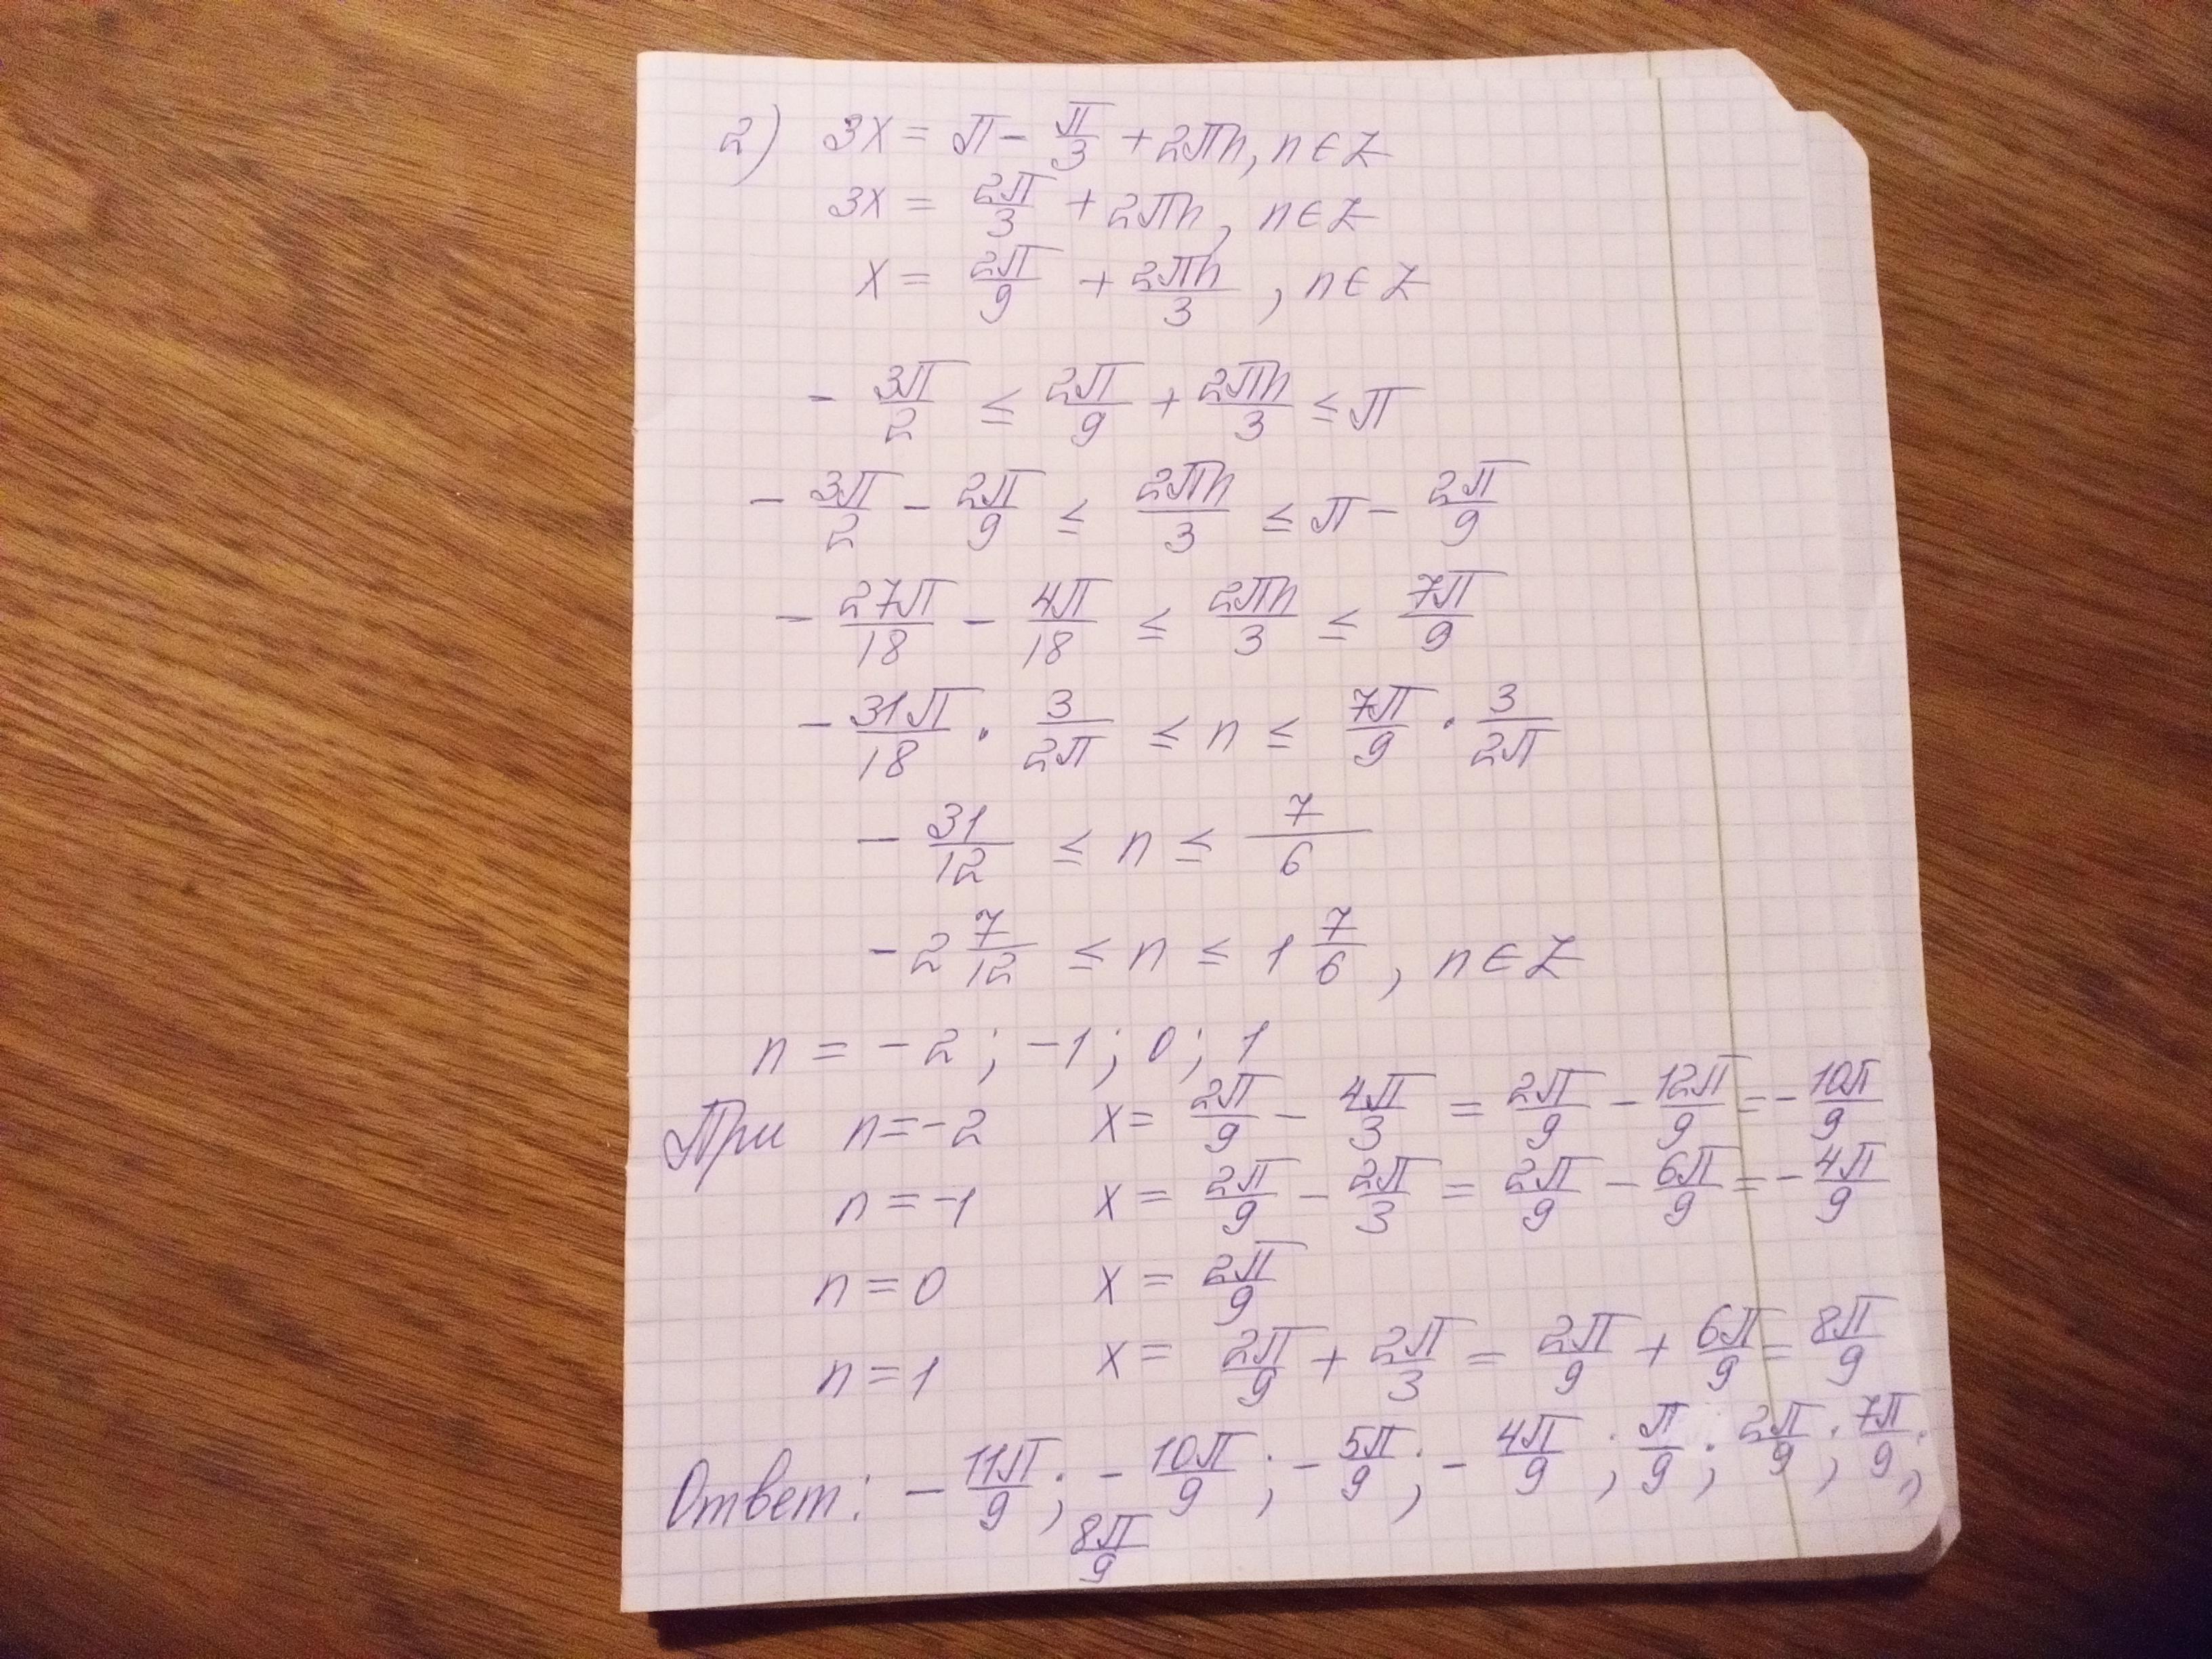 2) 3x = π - π/3 + 2πn, n ∈ Z
3x = 2π/3 + 2πn, n ∈ Z
x = 2π/9 + 2πn/3, n ∈ Z
- 3π/2 ≤ 2π/9 + 2πn/3 ≤ π
- 3π/2 - 2π/9 ≤ 2πn/3 ≤ π - 2π/9
- 27π/18 - 4π/18 ≤ 2πn/3 ≤ 7π/9
- 31π/18 · 3/2π ≤ n ≤ 7π/9 · 3/2π
- 31/12 ≤ n ≤ 7/6
- 2 7/12 ≤ n ≤ 1 7/6, n ∈ Z
n = -2; -1; 0; 1
При n = -2 x = 2π/9 - 4π/3 = 2π/9 - 12π/9 = - 10π/9
n = -1 x = 2π/9 - 2π/3 = 2π/9 - 6π/9 = - 4π/9
n = 0 x = 2π/9
n = 1 x = 2π/9 + 2π/3 = 2π/9 + 6π/9 = 8π/9
Ответ: - 11π/9; - 10π/9; - 5π/9; - 4π/9; π/9; 2π/9; 7π/9;
8π/9